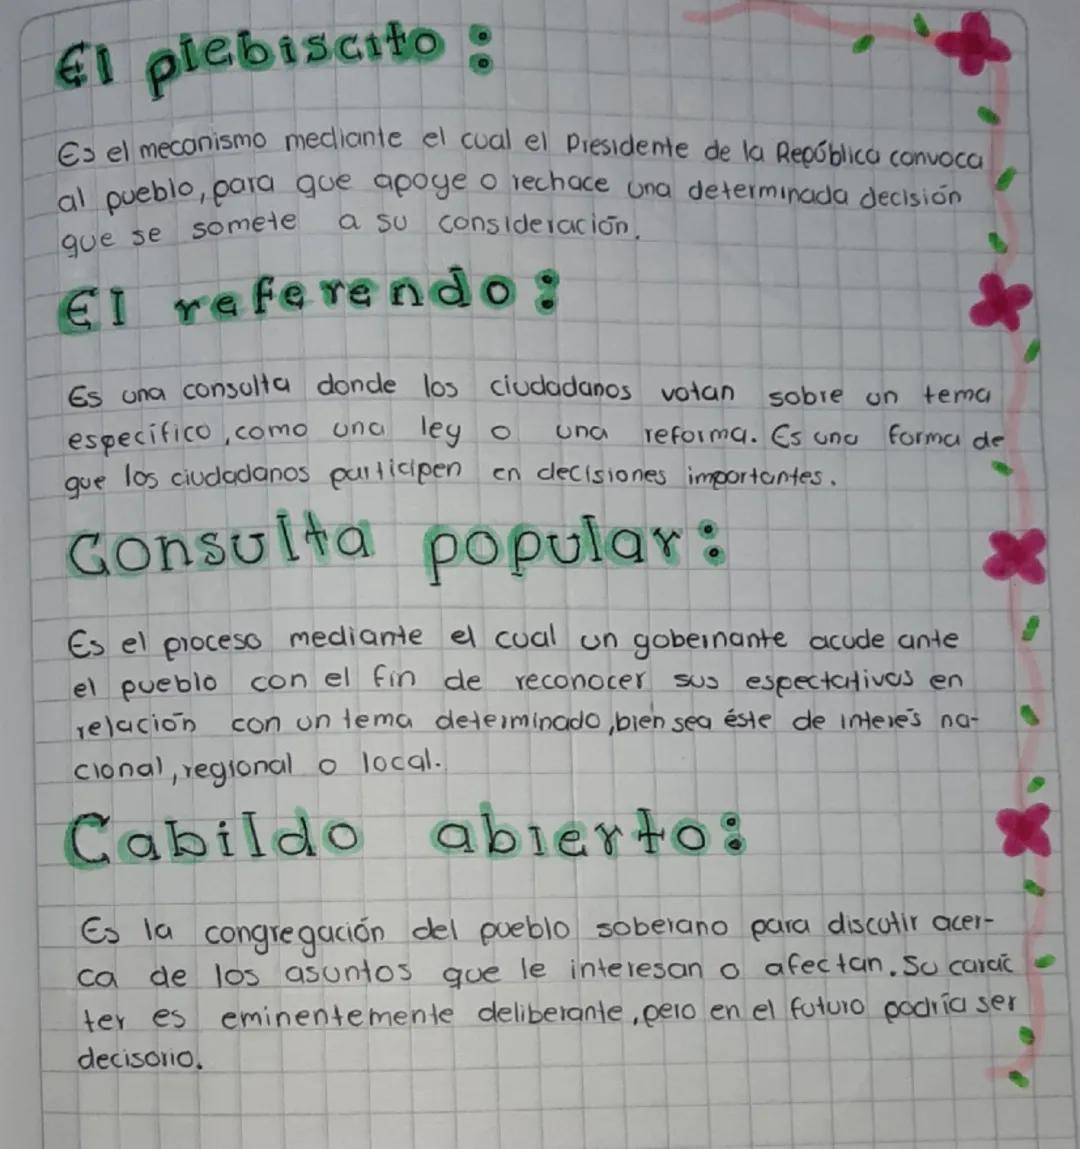 El plebiscito:
Es el mecanismo mediante el cual el Presidente de la República convoca
al pueblo, para que apoye o rechace una determinada decisión
que se somete a su consideración.
El referendo:
Es una consulta donde los ciudadanos votan sobre un tema
específico, como una ley o una reforma. Es una forma de
que los ciudadanos participen en decisiones importantes.
Consulta popular:
Es el proceso mediante el cual un gobernante acude ante
el pueblo con el fin de reconocer sus espectativas en
relación con un tema determinado, bien sea éste de interés na-
cional, regional o local.
Cabildo abierto:
Es la congregación del pueblo soberano para discutir acer-
ca de los asuntos que le interesan o afectan. Su carác
ter es eminentemente deliberante, pero en el futuro podría ser
decisorio.